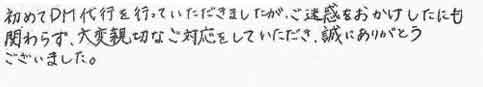 初めてDM代行を行っていただきましたが、ご迷惑をおかけしたにも
関わらず、大変親切なご対応をしていただき、誠にありがとう
ございました。